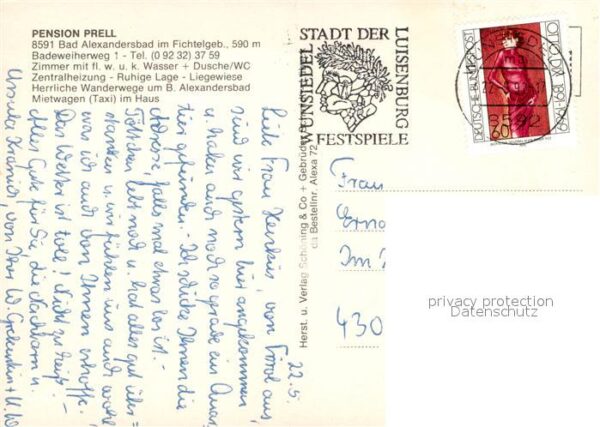 PENSION PRELL
8591 Bad Alexandersbad im Fichtelgeb., 590 m
Badeweiherweg 1 - Tel. (0 92 32) 37 59
Zimmer mit fl. w. u. k. Wasser + Dusche/WC
Zentralheizung - Ruhige Lage - Liegewiese
Herrliche Wanderwege um B. Alexandersbad
Mietwagen (Taxi) im Haus
STADT DER
LUISENBURG
FESTSPIELE
WUNSIEDEL
DEUTSCHE BUNDESPOST
60
8592
Herst. u. Verlag Schöning & Co + Gebrüder
Bestellnr. Alexa 72
22.5.
Liebe Frau von Tirol aus,
sind wir gestern hier angekommen
u. haben auch noch so gerade ein
tier gefunden. Ich schicke Ihnen die
Adresse, falls mal etwas los ist.
lebt noch u. hat alles gut über=
standen u. wir fühlen uns auch wohl
was ich auch von Ihnen hoffe.
Das Wetter ist toll! Nicht zu heiß!
Alles Gute für Sie, die Nachbarn u.
von Ihrer W.
Frau
Im
430
privacy protection
Datenschutz